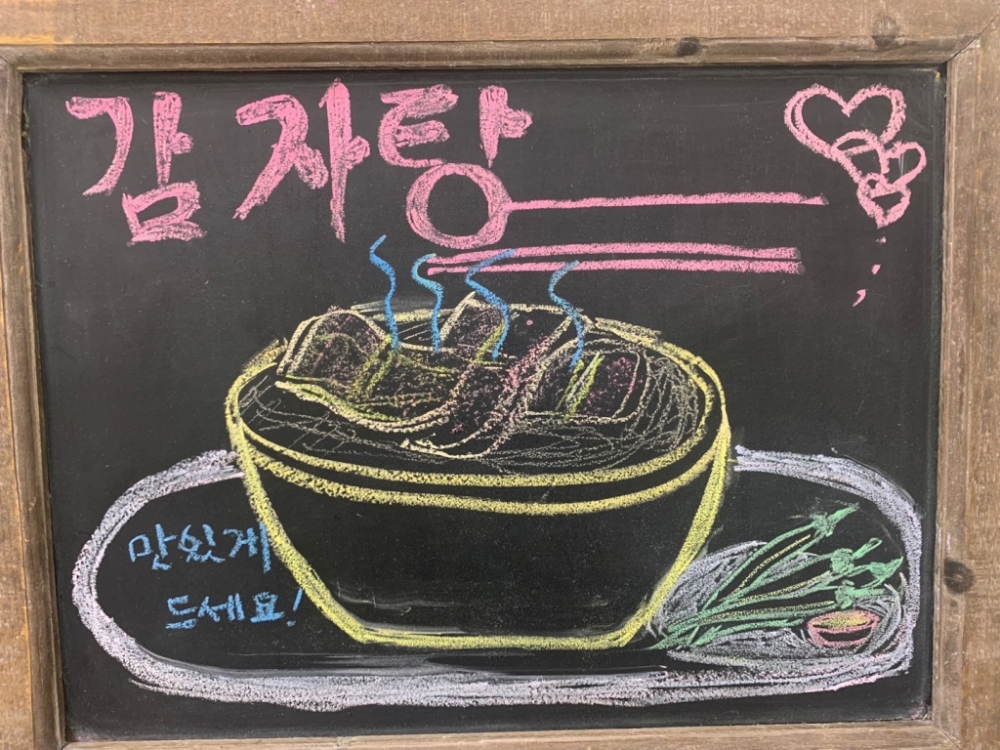 감자탕
맛있게
드세요!